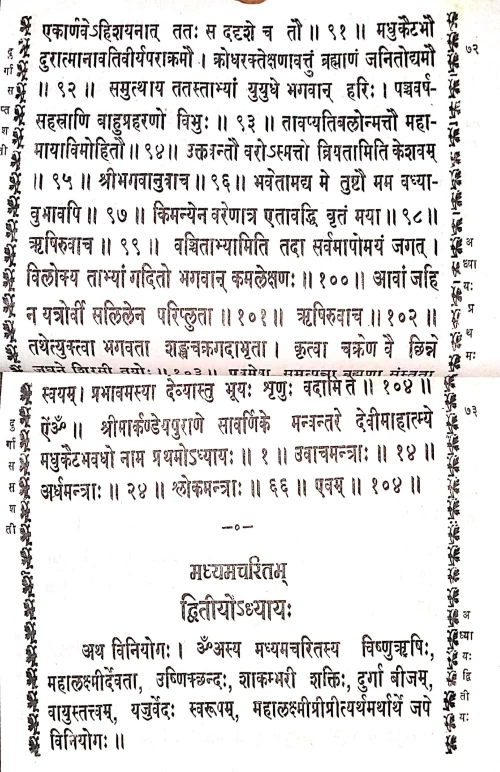 एकार्णवेऽहिशयनात् ततः स ददृशे च तौ ॥ ९१ ॥ मधुकैटभौ
दुरात्मानावतिवीर्यपराक्रमौ । क्रोधरक्तेक्षणावत्तुं ब्रह्माणं जनितोद्यमौ
॥ ९२ ॥ समुत्थाय ततस्ताभ्यां युयुधे भगवान् हरिः । पञ्चवर्ष-
सहस्त्राणि बाहुप्रहरणो विभुः ॥ ९३ ॥ तावप्यतिबलोन्मत्तौ महा-
मायाविमोहितौ ॥ ९४ ॥ उक्तवन्तौ वरोऽस्मत्तो व्रियतामिति केशवम्
॥ ९५ ॥ श्रीभगवानुवाच ॥ ९६ ॥ भवेतामद्य मे तुष्टौ मम वध्या-
वुभावपि ॥ ९७ ॥ किमन्येन वरेणात्र एतावद्धि वृतं मया ॥ ९८ ॥
ऋषिरुवाच ॥ ९९ ॥ वञ्चिताभ्यामिति तदा सर्वमापोमयं जगत् ।
विलोक्य ताभ्यां गदितो भगवान् कमलेक्षणः ॥ १०० ॥ आवां जहि
न यत्रोर्वी सलिलेन परिप्लुता ॥ १०१ ॥ ऋषिरुवाच ॥ १०२ ॥
तथेत्युक्त्वा भगवता शङ्खचक्रगदाभृता । कृत्वा चक्रेण वै छिन्ने
दुर्गासप्तशती
७२
अध्यायः प्रथमः
स्वयम् । प्रभावमस्या देव्यास्तु भूयः श्रृणुः वदामि ते ॥ १०४ ॥
ऐंॐ ॥ श्रीमार्कण्डेयपुराणे सावर्णिके मन्वन्तरे देवीमाहात्म्ये
मधुकैटभवधो नाम प्रथमोऽध्यायः ॥ १ ॥ उवाचमन्त्राः ॥ १४ ॥
अर्धमन्त्राः ॥ २४ ॥ श्लोकमन्त्राः ॥ ६६ ॥ एवम् ॥ १०४ ॥
—०—
मध्यमचरितम्
द्वितीयोऽध्यायः
अथ विनियोगः । ॐअस्य मध्यमचरितस्य विष्णुऋषिः,
महालक्ष्मीर्देवता, उष्णिक्छन्दः, शाकम्भरी शक्तिः, दुर्गा बीजम्,
वायुस्तत्त्वम्, यजुर्वेदः स्वरूपम्, महालक्ष्मीप्रीत्यर्थमर्थार्थे जपे
विनियोगः ॥
७३
अध्यायः द्वितीयः